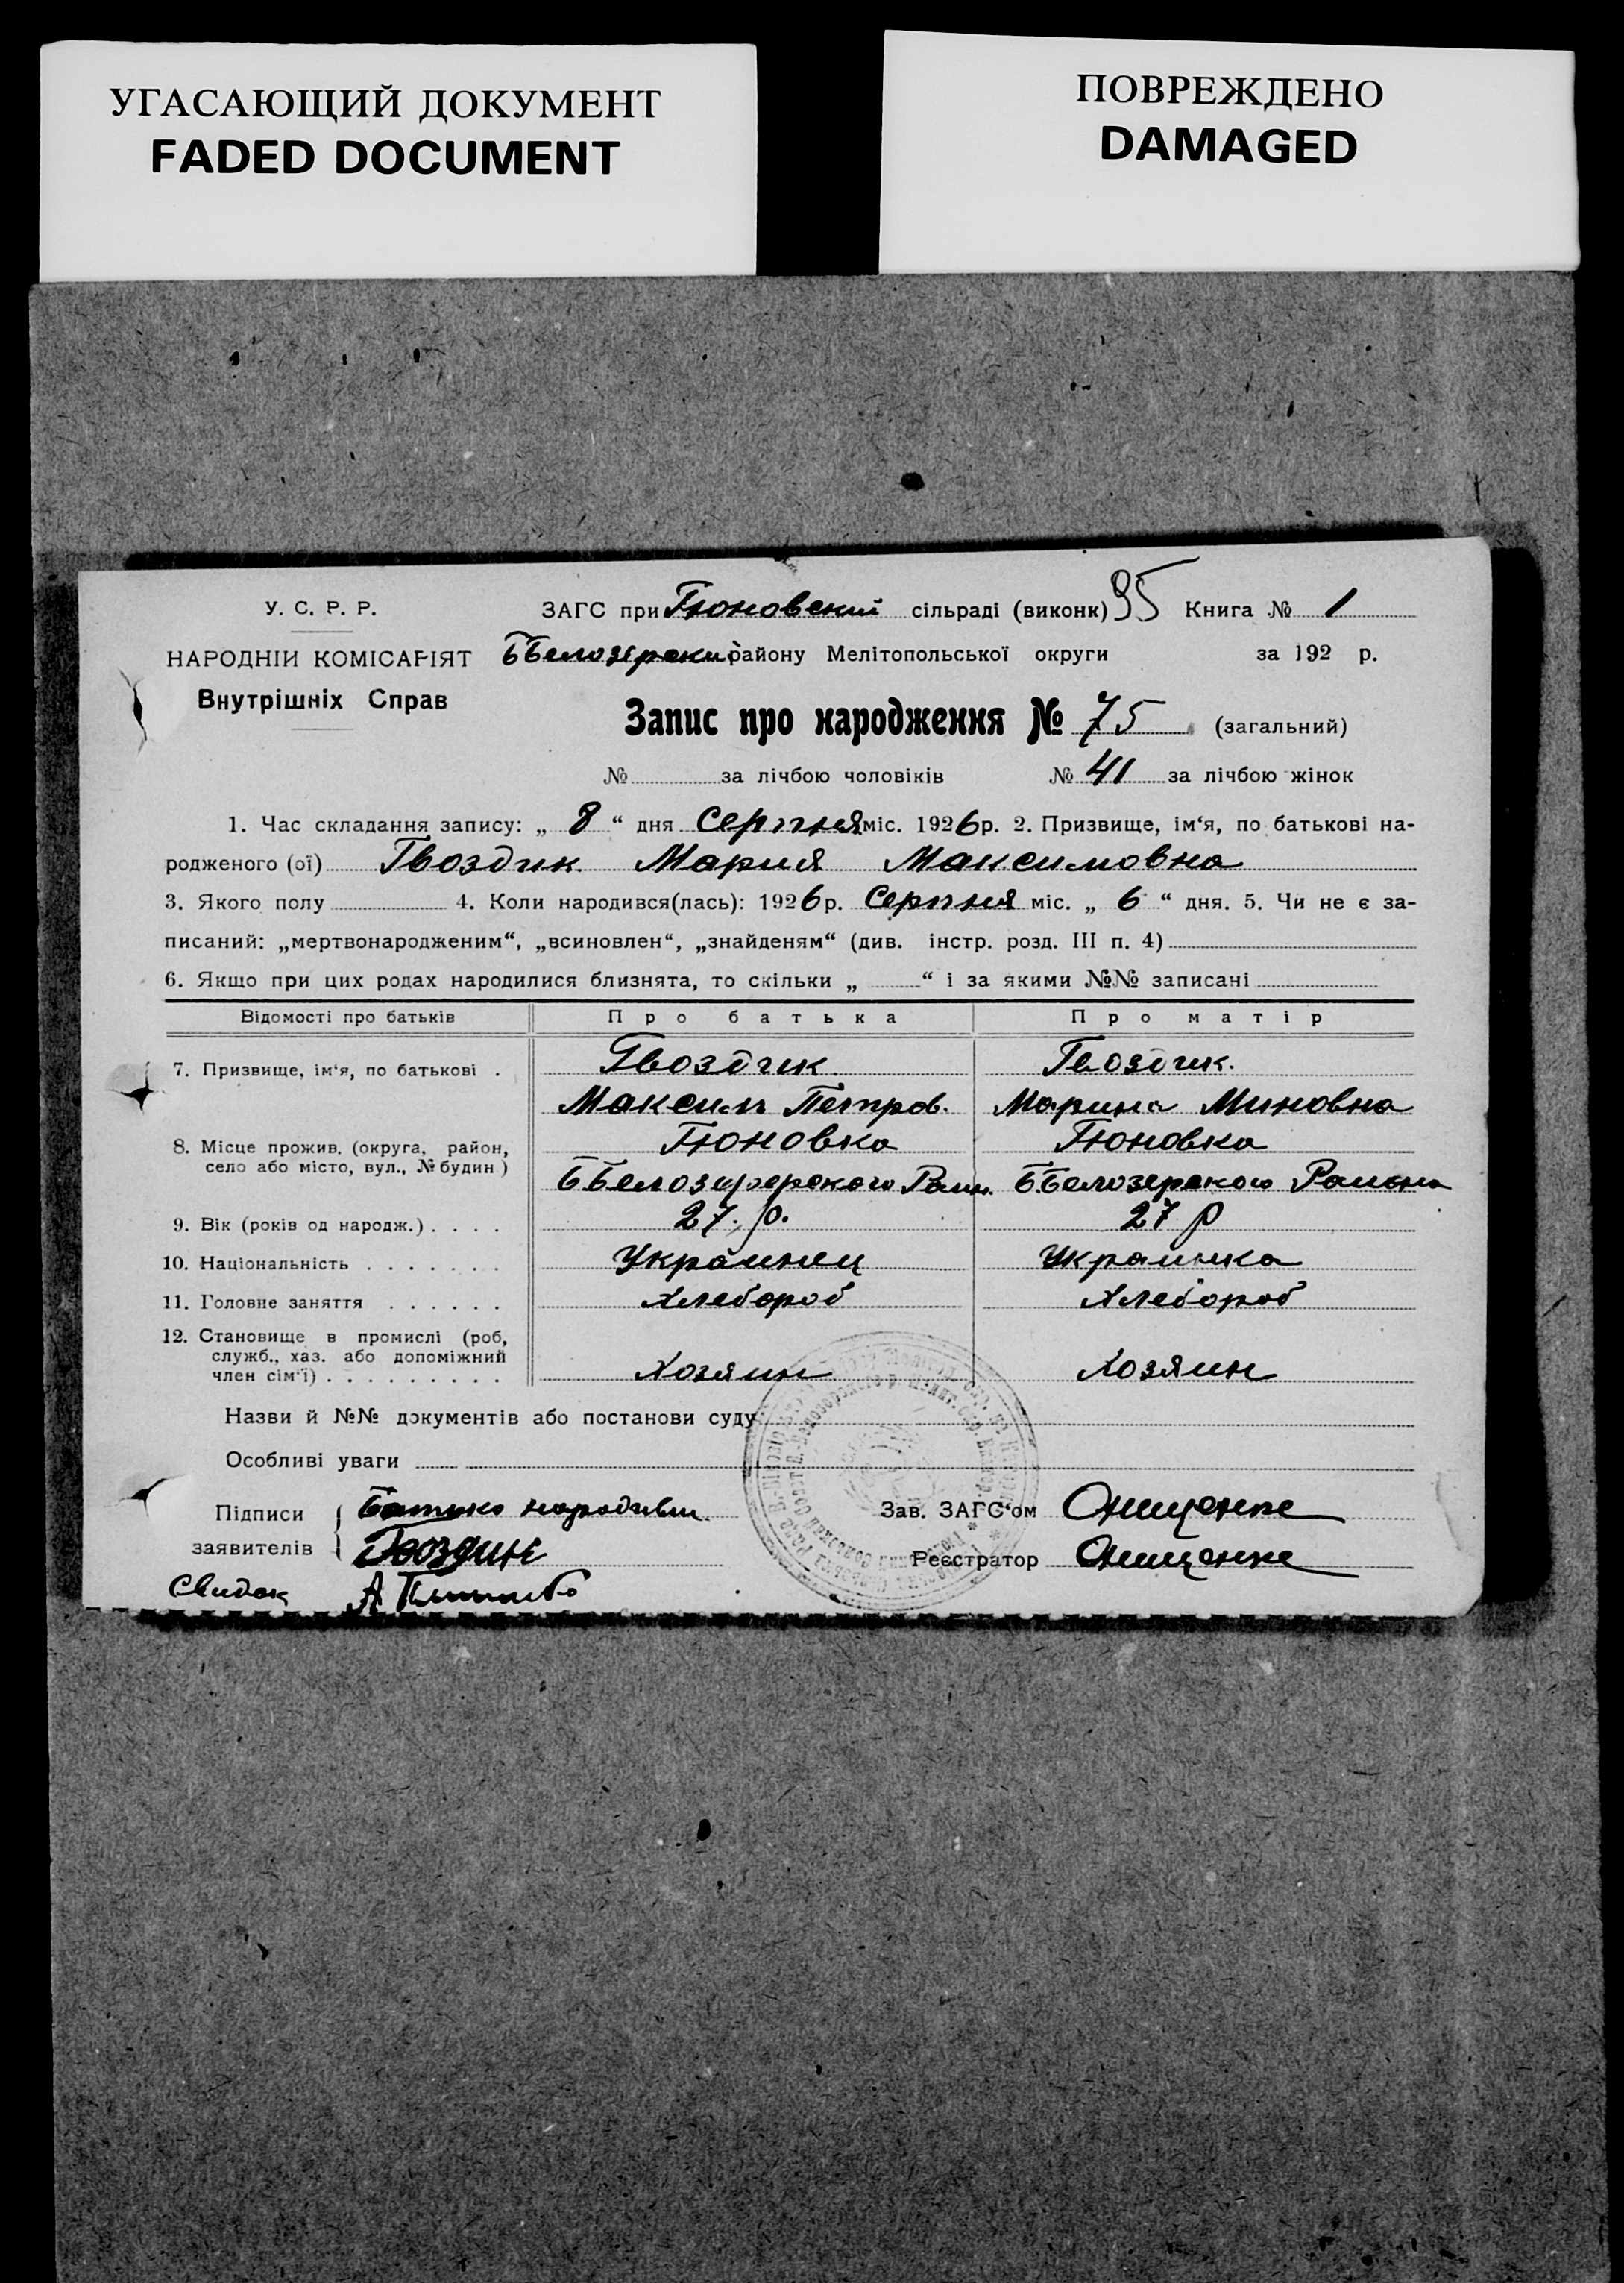 УГАСАЮЩИЙ ДОКУМЕНТ
FADED DOCUMENT
ПОВРЕЖДЕНО
DAMAGED
У. С. Р. Р.
ЗАГС при Гюновский сільраді (виконк) 95 Книга № 1
НАРОДНІЙ КОМІСАРІЯТ
ББелозерский району Мелітопольської округи за 192 р.
Внутрішніх Справ
Запис про народження № 75 (загальний)
№ за лічбою чоловіків № 41 за лічбою жінок
1. Час складання запису: „ 8 “ дня Серпня міс. 1926 р. 2. Призвище, ім‘я, по батькові на-
родженого (ої) Гвоздик Мария Максимовна
3. Якого полу 4. Коли народився(лась): 1926 р. Серпня міс. „ 6 “ дня. 5. Чи не є за-
писаний: „мертвонародженим“, „всиновлен“, „знайденям“ (див. інстр. розд. III п. 4)
6. Якщо при цих родах народилися близнята, то скільки „ “ і за якими №№ записані
Відомості про батьків Про батька Про матір
7. Призвище, ім‘я, по батькові . Гвоздик Гвоздик.
Максим Петров. Марина Миновна
8. Місце прожив. (округа, район, Гюновка Гюновка
село або місто, вул., № будин )
ББелозерского ББелозерского Района
9. Вік (років од народж.) . . . . 27. р. 27 р
10. Національність . . . . . . . Украинец Украинка
11. Головне заняття . . . . . . Хлебороб Хлебороб
12. Становище в промислі (роб,
служб., хаз. або допоміжний
член сім‘ї) . . . . . . . . . Хозяин Хозяин
Назви й №№ документів або постанови суду
Особливі уваги
Підписи Батько Зав. ЗАГС‘ом Онищенко
заявителів Гвоздик Реєстратор Онищенко
Свидок А